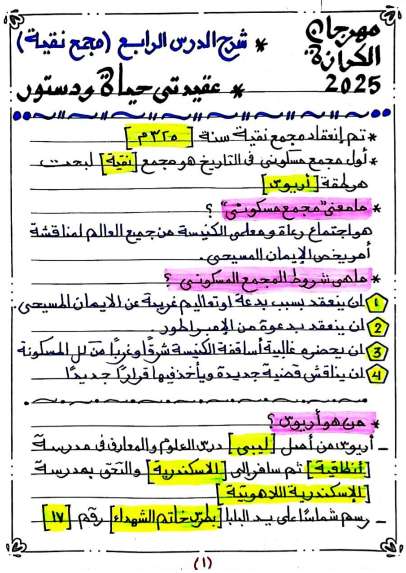 مهرجان
الكرازة
2025
* شرح الدرس الرابع (مجمع نقية)
* عقيدتي حياة ودستور
* تم إنعقاد مجمع نقية سنة [٣٢٥م]
* أول مجمع مسكوني في التاريخ هو مجمع [نقية] لبحث
هرطقة [أريوس]
* ما معنى "مجمع مسكوني" ؟
هو اجتماع رعاة ومعلمي الكنيسة من جميع العالم لمناقشة
أمر يخص الإيمان المسيحي.
* ماهي شروط المجمع المسكوني ؟
1 ان ينعقد بسبب بدعة او تعاليم غريبة عن الايمان المسيحي.
2 ان ينعقد بدعوة من الإمبراطور.
3 ان يحضره غالبية أساقفة الكنيسة شرقًا وغربًا من كل المسكونة
4 ان يناقش قضية جديدة ويأخذ فيها قرارًا جديدًا
* من هو أريوس ؟
_ أريوس من أصل [ليبي] درس العلوم والمعارف في مدرسة
[أنطاقية] ثم سافر إلى [الاسكندرية] والتحق بمدرسة
[الإسكندرية اللاهوتية]
_ رسم شماسًا على يد البابا [بطرس خاتم الشهداء] رقم [١٧]
(١)